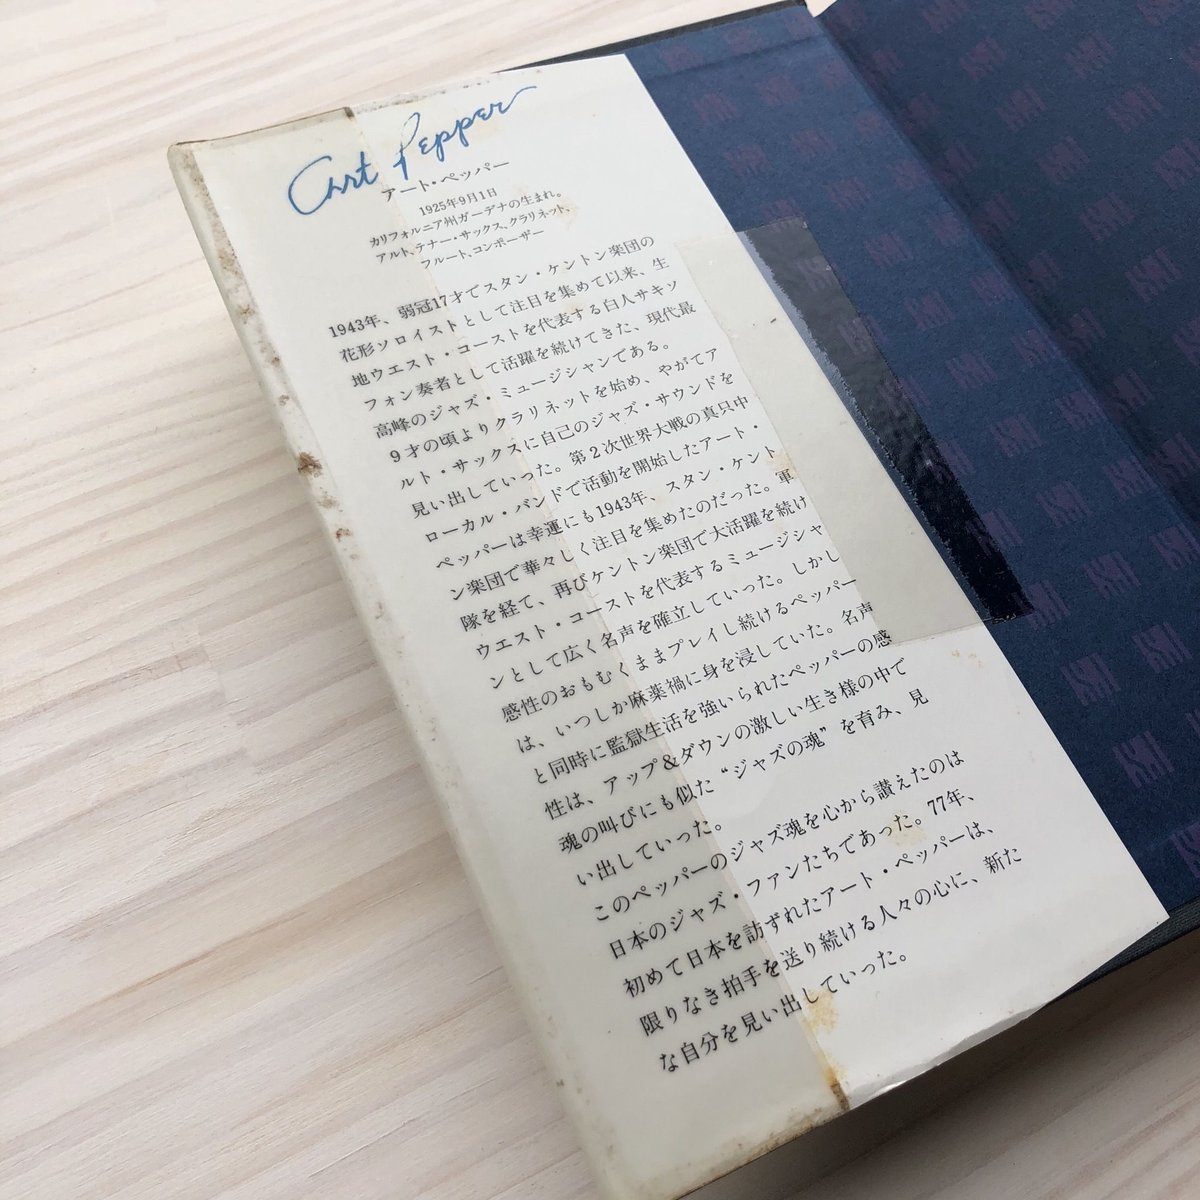 Art Pepper
アート・ペッパー
1925年9月1日
カリフォルニア州ガーデナの生まれ。
アルト、テナー・サックス、クラリネット、
フルート、コンポーザー
1943年、弱冠17才でスタン・ケントン楽団の
花形ソロイストとして注目を集めて以来、生
地ウエスト・コーストを代表する白人サキソ
フォン奏者として活躍を続けてきた、現代最
高峰のジャズ・ミュージシャンである。
9才の頃よりクラリネットを始め、やがてア
ルト・サックスに自己のジャズ・サウンドを
見い出していった。第2次世界大戦の真只中
ローカル・バンドで活動を開始したアート・
ペッパーは幸運にも1943年、スタン・ケント
ン楽団で華々しく注目を集めたのだった。軍
隊を経て、再びケントン楽団で大活躍を続け
ウエスト・コーストを代表するミュージシャ
ンとして広く名声を確立していった。しかし
感性のおもむくままプレイし続けるペッパー
は、いつしか麻薬禍に身を浸していた。名声
と同時に監獄生活を強いられたペッパーの感
性は、アップ&ダウンの激しい生き様の中で
魂の叫びにも似た“ジャズの魂”を育み、見
い出していった。
このペッパーのジャズ魂を心から讃えたのは
日本のジャズ・ファンたちであった。77年、
初めて日本を訪ずれたアート・ペッパーは、
限りなき拍手を送り続ける人々の心に、新た
な自分を見い出していった。